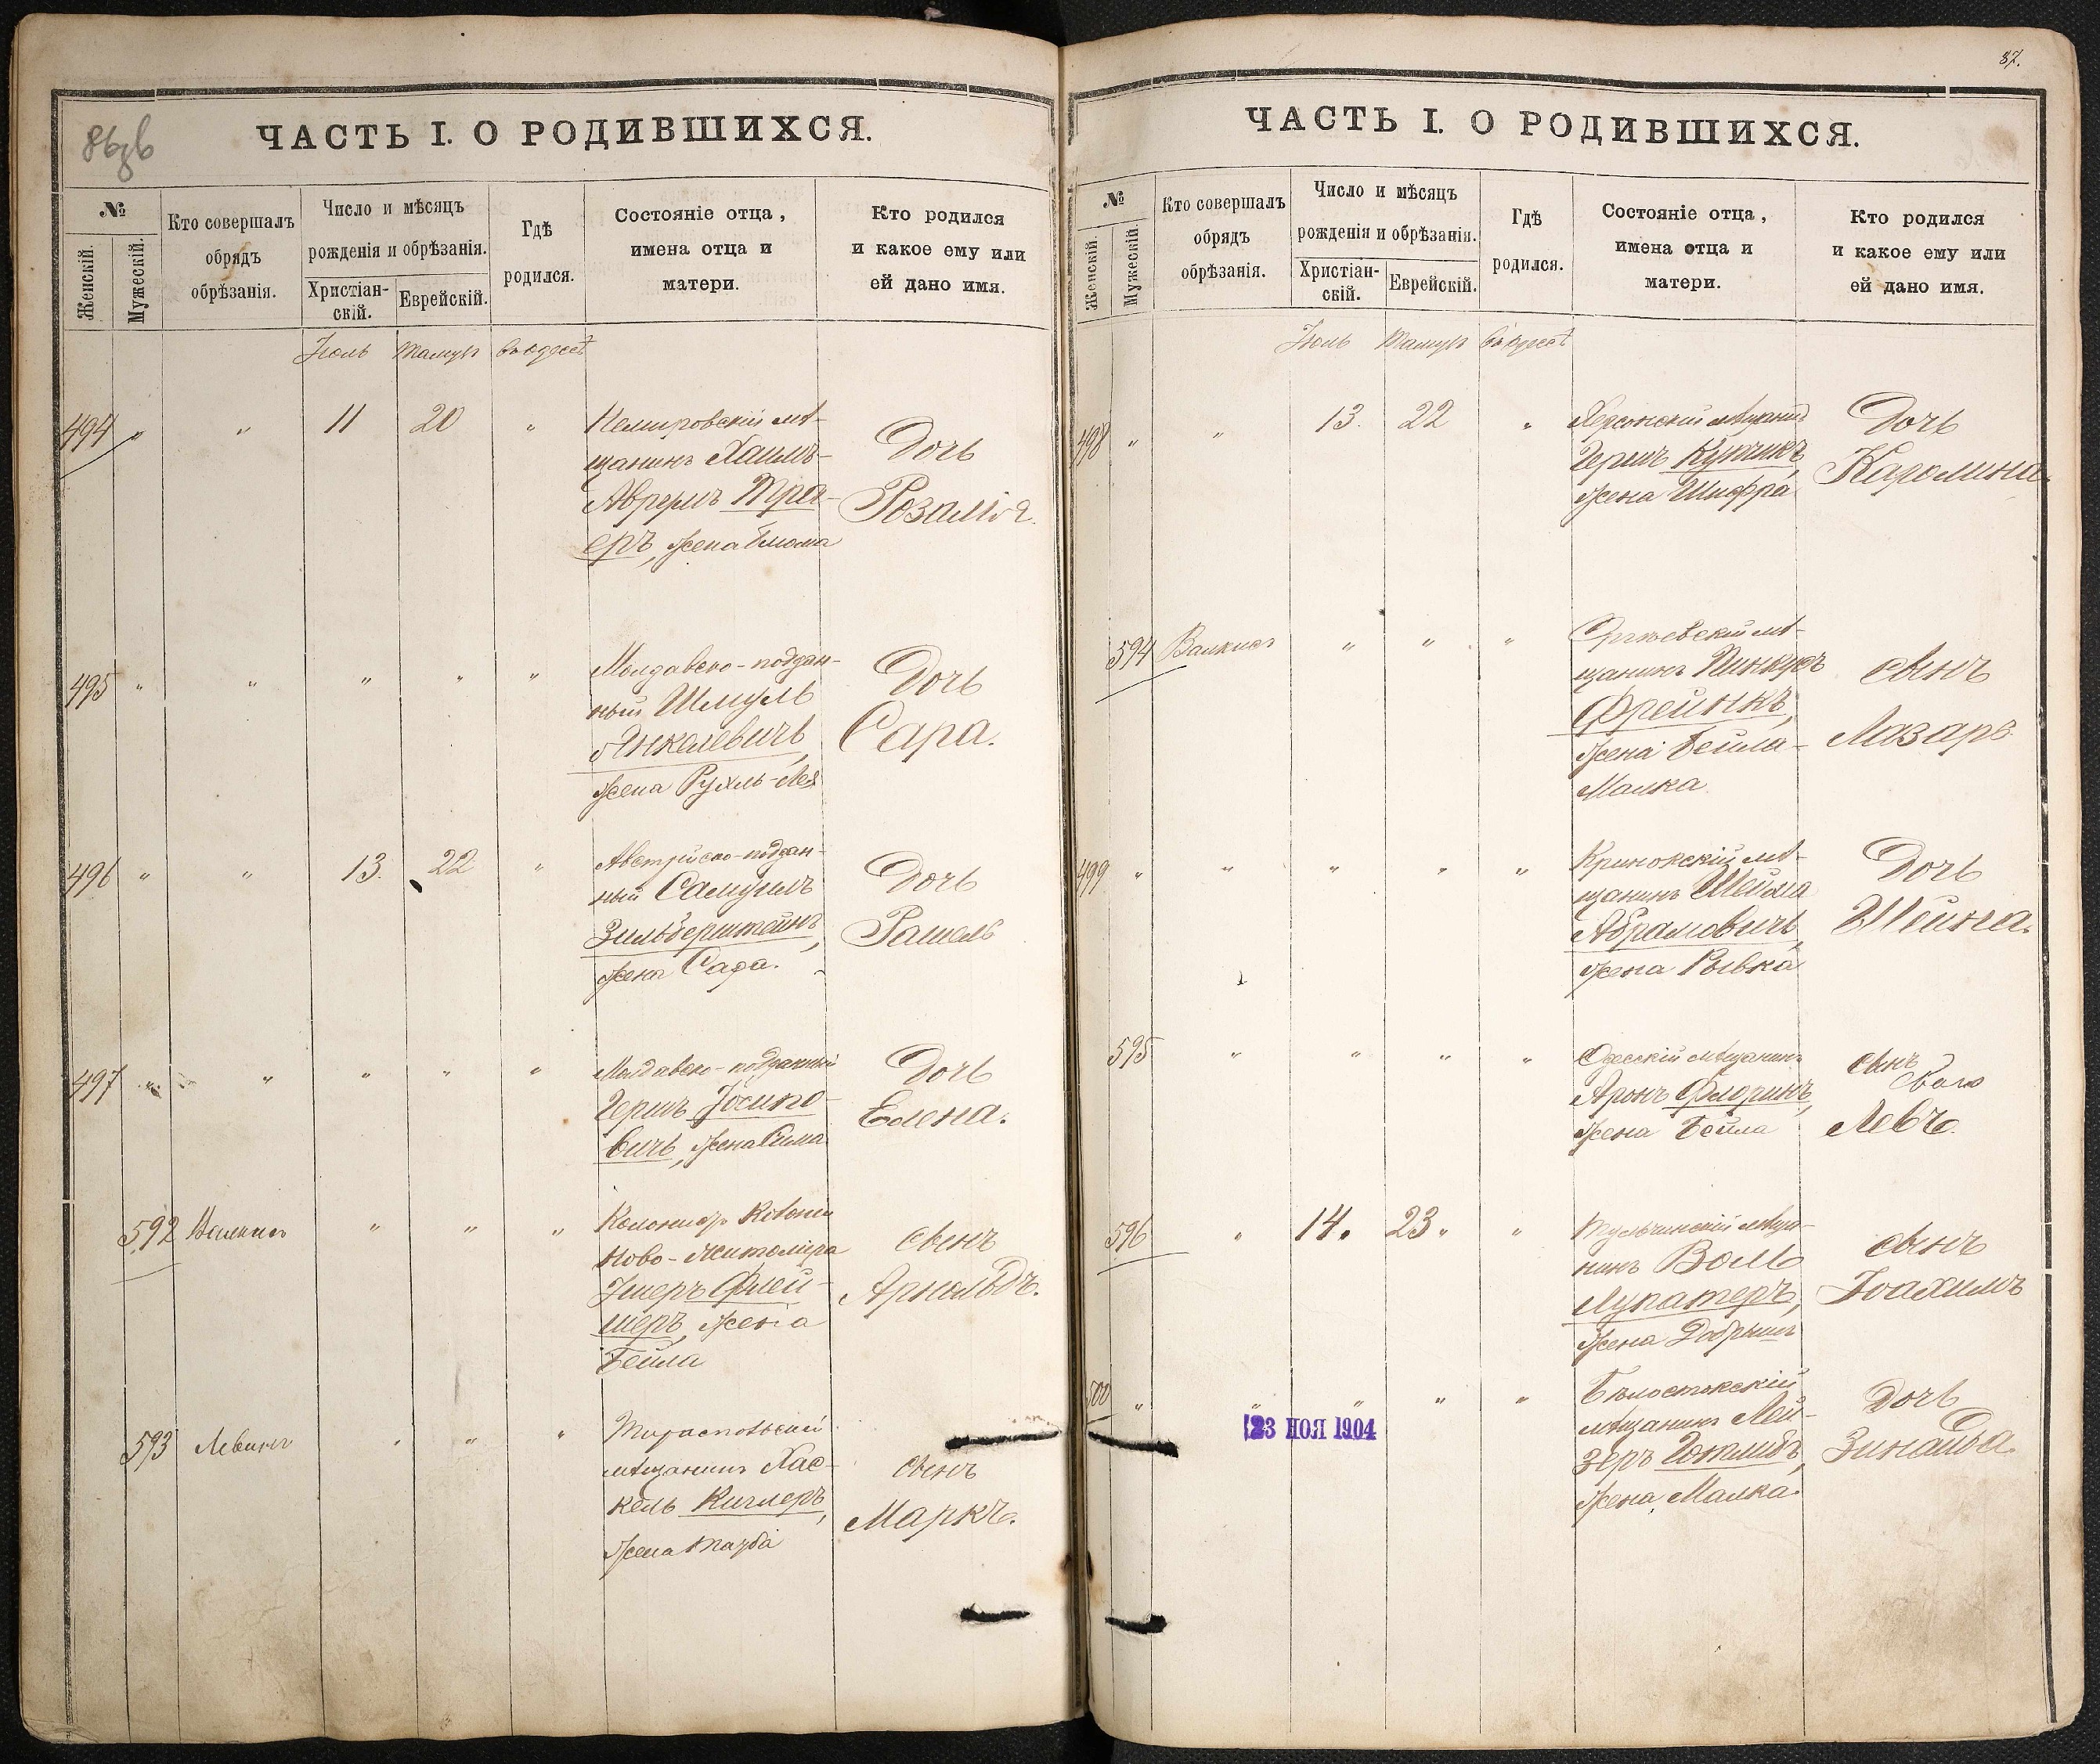 86зв
ЧАСТЬ I. О РОДИВШИХСЯ.
№
Женскій.
Мужескій.
Кто совершалъ
обрядъ
обрѣзанія.
Число и мѣсяцъ
рожденія и обрѣзанія.
Христіан-
скій.
Еврейскій.
Гдѣ
родился.
Состояніе отца,
имена отца и
матери.
Кто родился
и какое ему или
ей дано имя.
Іюль Тамузъ въ Одессѣ
494 " " 11 20 "
Немировскій мѣ-
щанинъ Хаимъ-
Аврумъ Тра-
еръ, жена Блюма
Дочь
Розалія.
495 " " " " "
Молдавско-поддан-
ный Шмуль
Янкелевичъ,
жена Рухль-Лея
Дочь
Сара.
496 " " 13. 22 "
Австрійско-поддан-
ный Самуилъ
Зильберштейнъ,
жена Сара.
Дочь
Рашель
497 " " " " "
Молдавско-подданный
Гершъ Іосипо-
вичъ, жена Сима
Дочь
Елена.
592 " " "
Колонистъ Колоніи
Ново-Житоміра
Флей-
шеръ, жена
Бейла
сынъ
Арнольдъ.
593 Левинъ " " "
Тираспольскій
мѣщанинъ Хас-
кель Кичлеръ,
жена Тауба
сынъ
Маркъ.
87.
ЧАСТЬ I. О РОДИВШИХСЯ.
№
Женскій.
Мужескій.
Кто совершалъ
обрядъ
обрѣзанія.
Число и мѣсяцъ
рожденія и обрѣзанія.
Христіан-
скій.
Еврейскій.
Гдѣ
родился.
Состояніе отца,
имена отца и
матери.
Кто родился
и какое ему или
ей дано имя.
Іюль Тамузъ въ Одессѣ
498 " " 13. 22 "
Херсонскій мѣщанинъ
Гершъ
жена Шифра
Дочь
Каролина.
594 " " "
Оргѣевскій мѣ-
щанинъ Пинкусъ
Фрейнкъ,
жена Бейла-
Малка
сынъ
Лазарь
499 " " " " "
Кринокскій мѣ-
щанинъ
Абрамовичъ,
жена Ривка
Дочь
Шейна.
595 " " " "
Одесскій мѣщанинъ
Аронъ Флоринъ,
жена Бейла
сынъ
Левъ.
596 " 14. 23 " "
Тульчинскій мѣща-
нинъ Волъ
Лупатеръ,
жена Добрышъ
сынъ
Іоахимъ
500 " " " " "
23 НОЯ 1904
Бѣлостокскій
мѣщанинъ Лей-
зеръ
жена Малка.
Дочь
Зинаида.